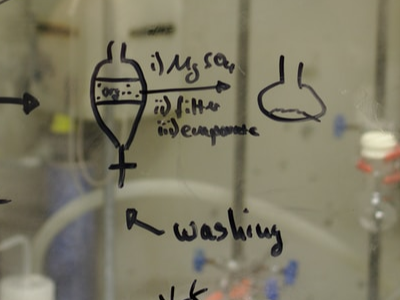 org
i) MgSO4
ii) filter
iii) evaporate
R washing